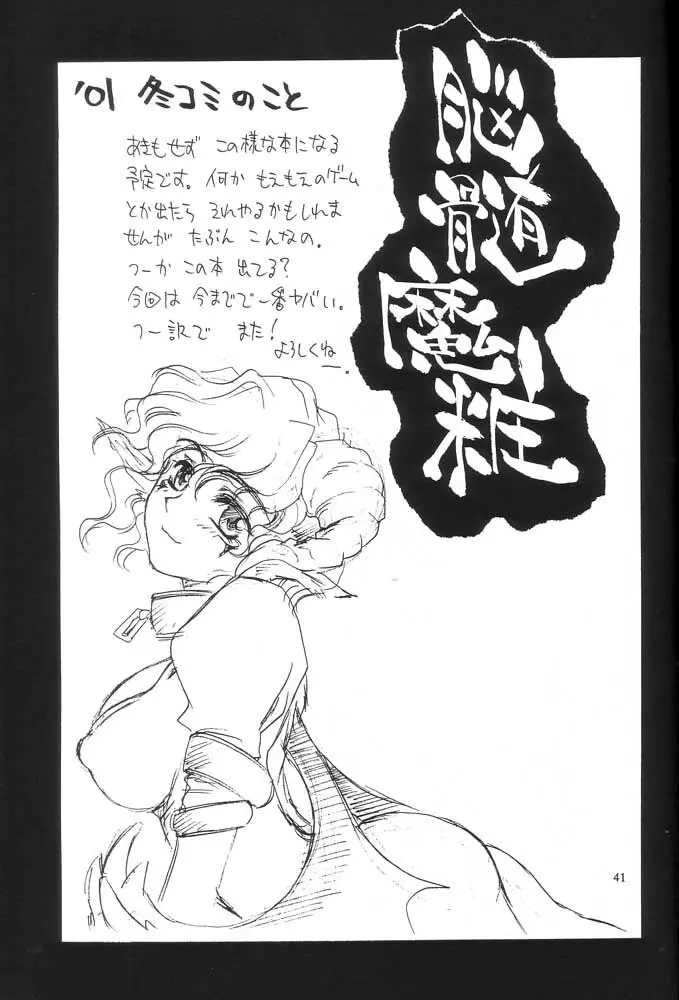 '01 冬コミのこと
あきもせず この様な本になる
予定です。何か もえもえのゲーム
とか出たら それやるかもしれま
せんが たぶん こんなの。
つーか この本 出てる?
今回は 今までで一番ヤバい。
つー訳で また!
よろしくねー。
脳髄魔粧
41